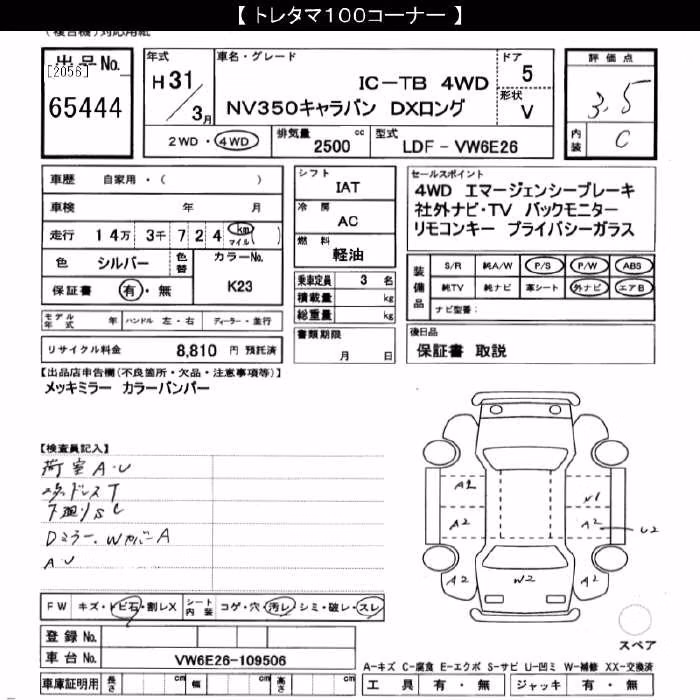 【 トレタマ100コーナー 】
(複合機)対応用紙
出品No.
[2056]
65444
年式
H 31 / 3月
車名・グレード
IC-TB 4WD
NV350キャラバン DXロング
ドア
5
形状
V
評価点
3.5
内装
C
2WD・4WD
排気量 2500 cc
型式 LDF-VW6E26
車歴 自家用・( )
車検 年 月
走行 14万 3千 7 2 4 km マイル ( )
色 シルバー 色替 カラーNo. K23
保証書 有・無
モデル年式 年 ハンドル 左・右 ディーラー・並行
リサイクル料金 8,810 円 預託済
シフト
IAT
冷房
AC
燃料
軽油
乗車定員 3 名
積載量 kg
総重量 kg
書類期限
月 日
セールスポイント
4WD エマージェンシーブレーキ
社外ナビ・TV バックモニター
リモコンキー プライバシーガラス
装備品
S/R 純A/W P/S P/W ABS
純TV 純ナビ 革シート 外ナビ エアB
ナビ型番:
後日品
保証書 取説
【出品店申告欄(不良箇所・欠品・注意事項等)】
メッキミラー カラーバンパー
【検査員記入】
荷室 A・U
下廻りS
Dミラー、WカバーA
A U
FW キズ・トビ石・割レX シート内装 コゲ・穴・汚レ・シミ・破レ・スレ
登録No.
車台No. VW6E26-109506
車庫証明用 長さ cm 幅 cm 高さ cm
A2
A2
A2
W1
A2
U2
A2
W2
スペア
A-キズ C-腐食 E-エクボ S-サビ U-凹ミ W-補修 XX-交換済
工具 有・無 ジャッキ 有・無